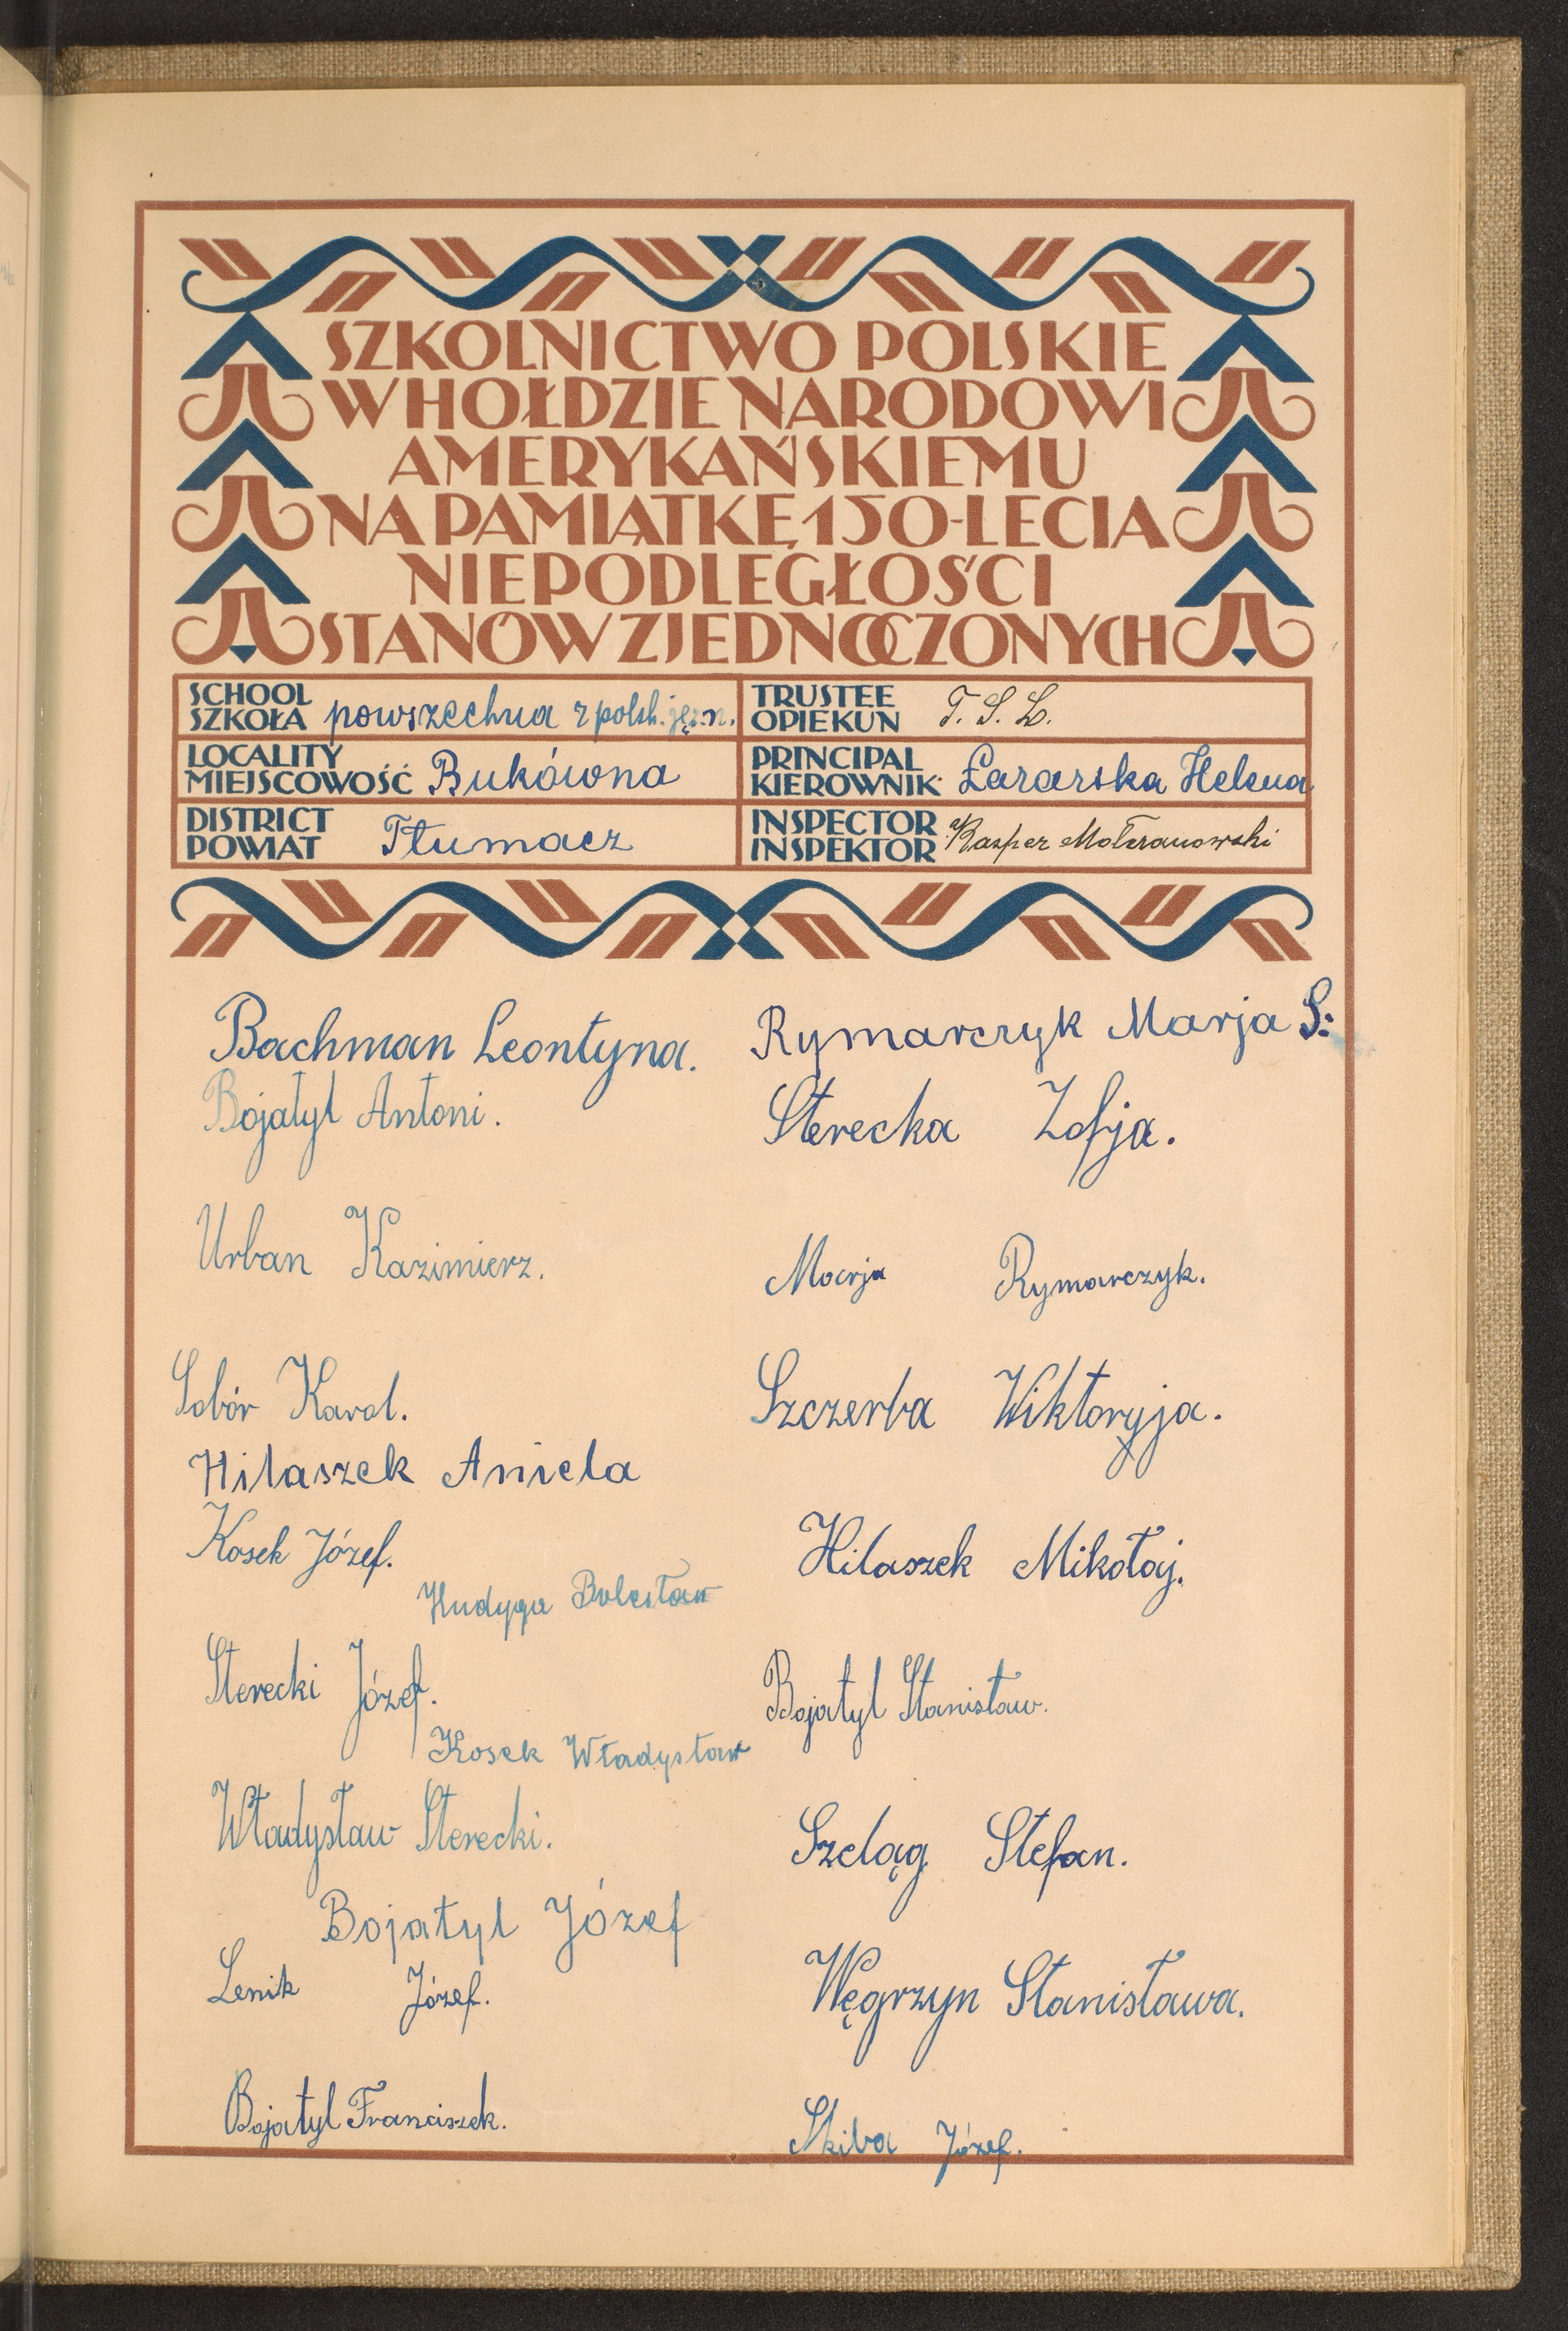 SZKOLNICTWO POLSKIE
W HOŁDZIE NARODOWI
AMERYKAŃSKIEMU
NA PAMIĄTKĘ 150-LECIA
NIEPODLEGŁOŚCI
STANÓW ZJEDNOCZONYCH
SCHOOL
SZKOŁA powszechna z polsk. jęz. n.
TRUSTEE
OPIEKUN T. S. L.
LOCALITY
MIEJSCOWOŚĆ Bukówna
PRINCIPAL
KIEROWNIK Helena
DISTRICT
POWIAT Tłumacz
INSPECTOR
INSPEKTOR Kasper
Bachman Leontyna.
Bojatyl Antoni.
Urban Kazimierz.
Sobór Karol.
Hilaszek Aniela
Kosek Józef.
Hudyga Bolesław
Sterecki Józef.
Kosek Władysław
Władysław Sterecki.
Bojatyl Józef
Lenik Józef.
Bojatyl Franciszek.
Rymarczyk Marja S:
Sterecka Zofja.
Marja Rymarczyk.
Szczerba Wiktoryja.
Hilaszek Mikołaj.
Bojatyl Stanisław.
Szeląg Stefan.
Węgrzyn Stanisława.
Skiba Józef.